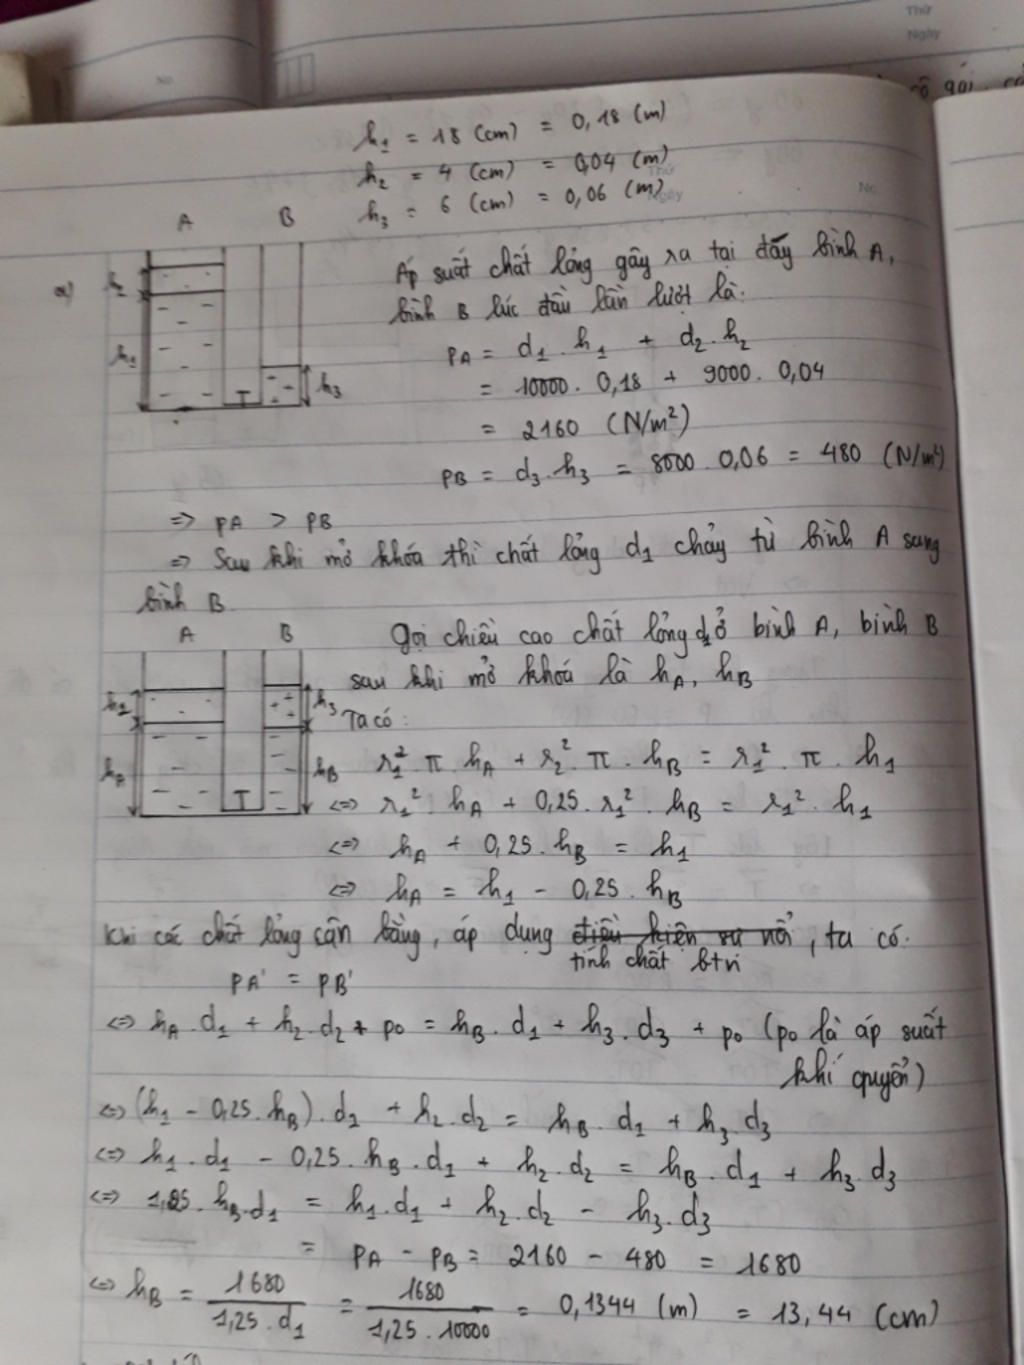 Thứ
Ngày
No.
h₁ = 18 (cm) = 0,18 (m)
h₂ = 4 (cm) = 0,04 (m)
h₃ = 6 (cm) = 0,06 (m)
Thứ
Ngày
No.
A B
a)
h₂
h₁
h₃
T
Áp suất chất lỏng gây ra tại đáy bình A,
bình B lúc đầu lần lượt là:
pA = d₁ . h₁ + d₂ . h₂
= 10000 . 0,18 + 9000 . 0,04
= 2160 (N/m²)
pB = d₃ . h₃ = 8000 . 0,06 = 480 (N/m²)
=> pA > pB
=> Sau khi mở khóa thì chất lỏng d₁ chảy từ bình A sang
bình B
A B
h₂
hA
h₃
hB
T
Gọi chiều cao chất lỏng d₁ ở bình A, bình B
sau khi mở khoá là hA, hB
Ta có:
r₁² π . hA + r₂² . π . hB = r₁² . π . h₁
<=> r₁² . hA + 0,25 . r₁² . hB = r₁² . h₁
<=> hA + 0,25 . hB = h₁
<=> hA = h₁ - 0,25 . hB
Khi các chất lỏng cân bằng, áp dụng điều kiện sự nổi, ta có:
tính chất btn
pA' = pB'
<=> hA . d₁ + h₂ . d₂ + po = hB . d₁ + h₃ . d₃ + po (po là áp suất
khí quyển)
<=> (h₁ - 0,25 . hB) . d₁ + h₂ . d₂ = hB . d₁ + h₃ . d₃
<=> h₁ . d₁ - 0,25 . hB . d₁ + h₂ . d₂ = hB . d₁ + h₃ . d₃
<=> 1,25 . hB . d₁ = h₁ . d₁ + h₂ . d₂ - h₃ . d₃
= pA - pB = 2160 - 480 = 1680
<=> hB = 1680 / 1,25 . d₁ = 1680 / 1,25 . 10000 = 0,1344 (m) = 13,44 (cm)